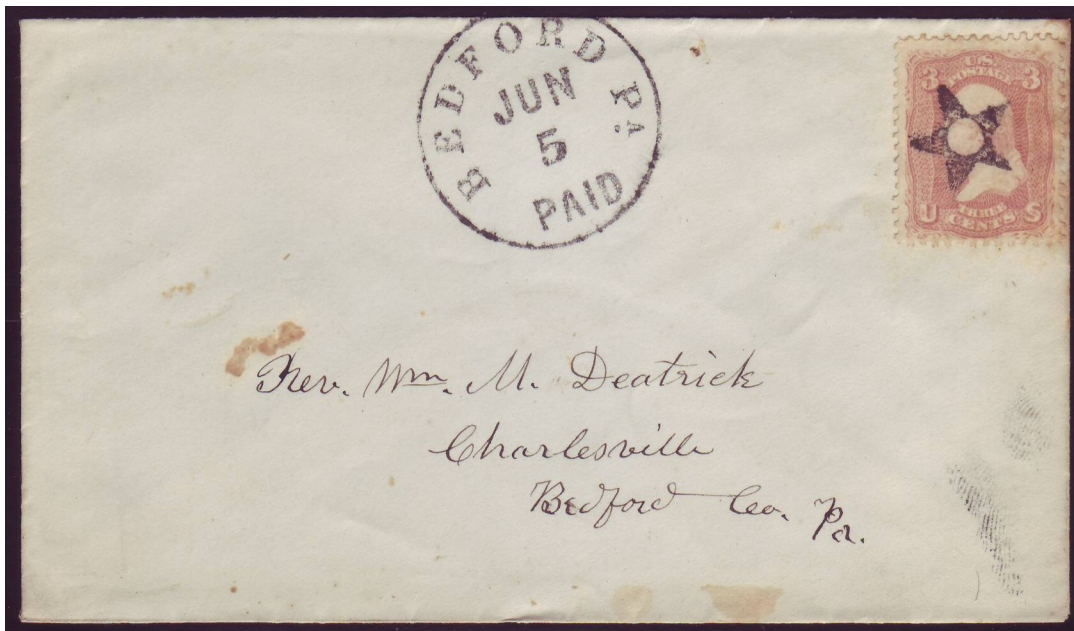 BEDFORD PA.
JUN
5
PAID
3 U.S. 3
POSTAGE
U THREE S
CENTS
Rev. Wm. M. Deatrick
Charlesville
Bedford Co. Pa.